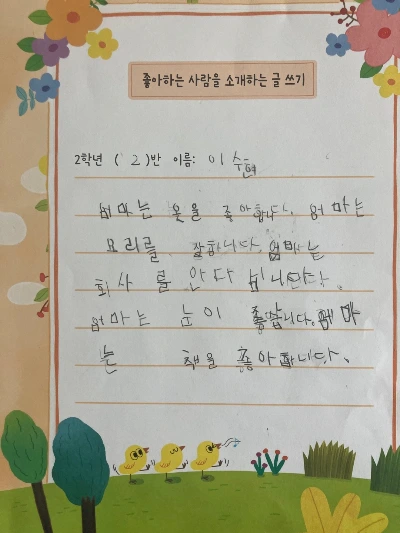 좋아하는 사람을 소개하는 글 쓰기
2학년 (2)반 이름: 이수현
엄마는 옷을 좋아합니다. 엄마는
요리를 잘합니다. 엄마는
회사를 안다닙니다.
엄마는 눈이 좋습니다. 엄마
는 책을 좋아합니다.